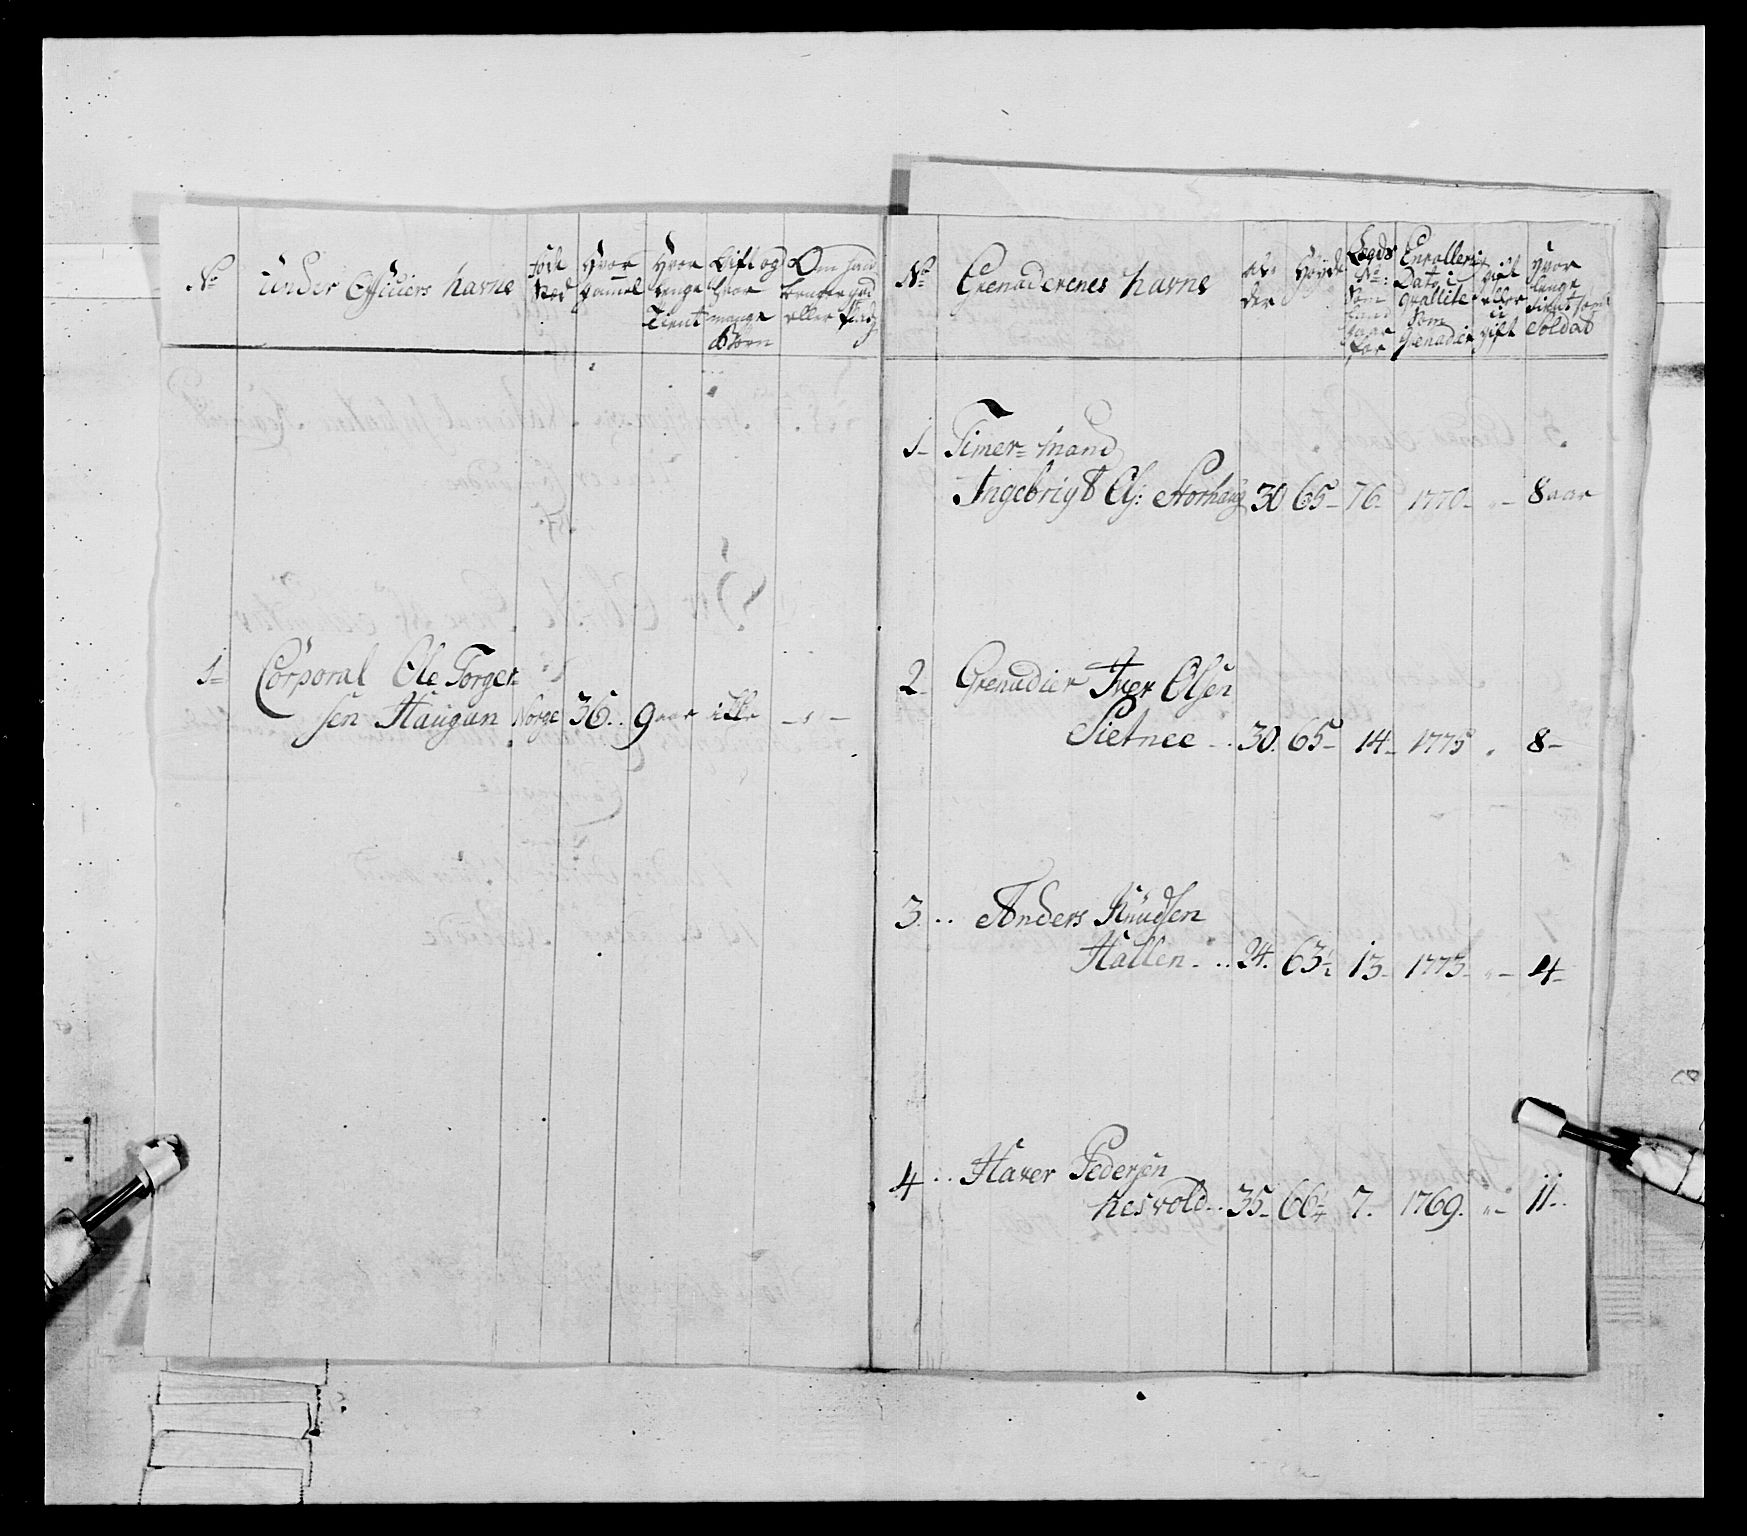 No
Under Officiers Navne
Fød
Sted
Hvor
Gamel
Hvor
lenge
Tient
Gift og
hvor
mange
Børn
Om hand
bruger gaard
eller Plads
1
Corporal Ole Torger-
sen Haugan Norge 36 .. 9 aar ikke
No
Grenaderenes Navne
Al-
der
Høyde
Legds
No:
som
hand
staar
for
Enrollerings
Dato i
qvallite
som
Grenadier
gift
eller
u
gift
Hvor
lenge
tient som
Soldat
1 Timer-Mand
Ingebrigt Ols: Storhaug 30 65 76 1770 8 aar
2 Grenadier Iver Olsen
Sietnee 30. 65 14 1775 8
3 .. Anders Knudsen
Hallen 24. 63 1/2 13 1773 4
4 .. Haver Pedersen
Nesvold .. 35 66 1/4 7. 1769. 11 ..